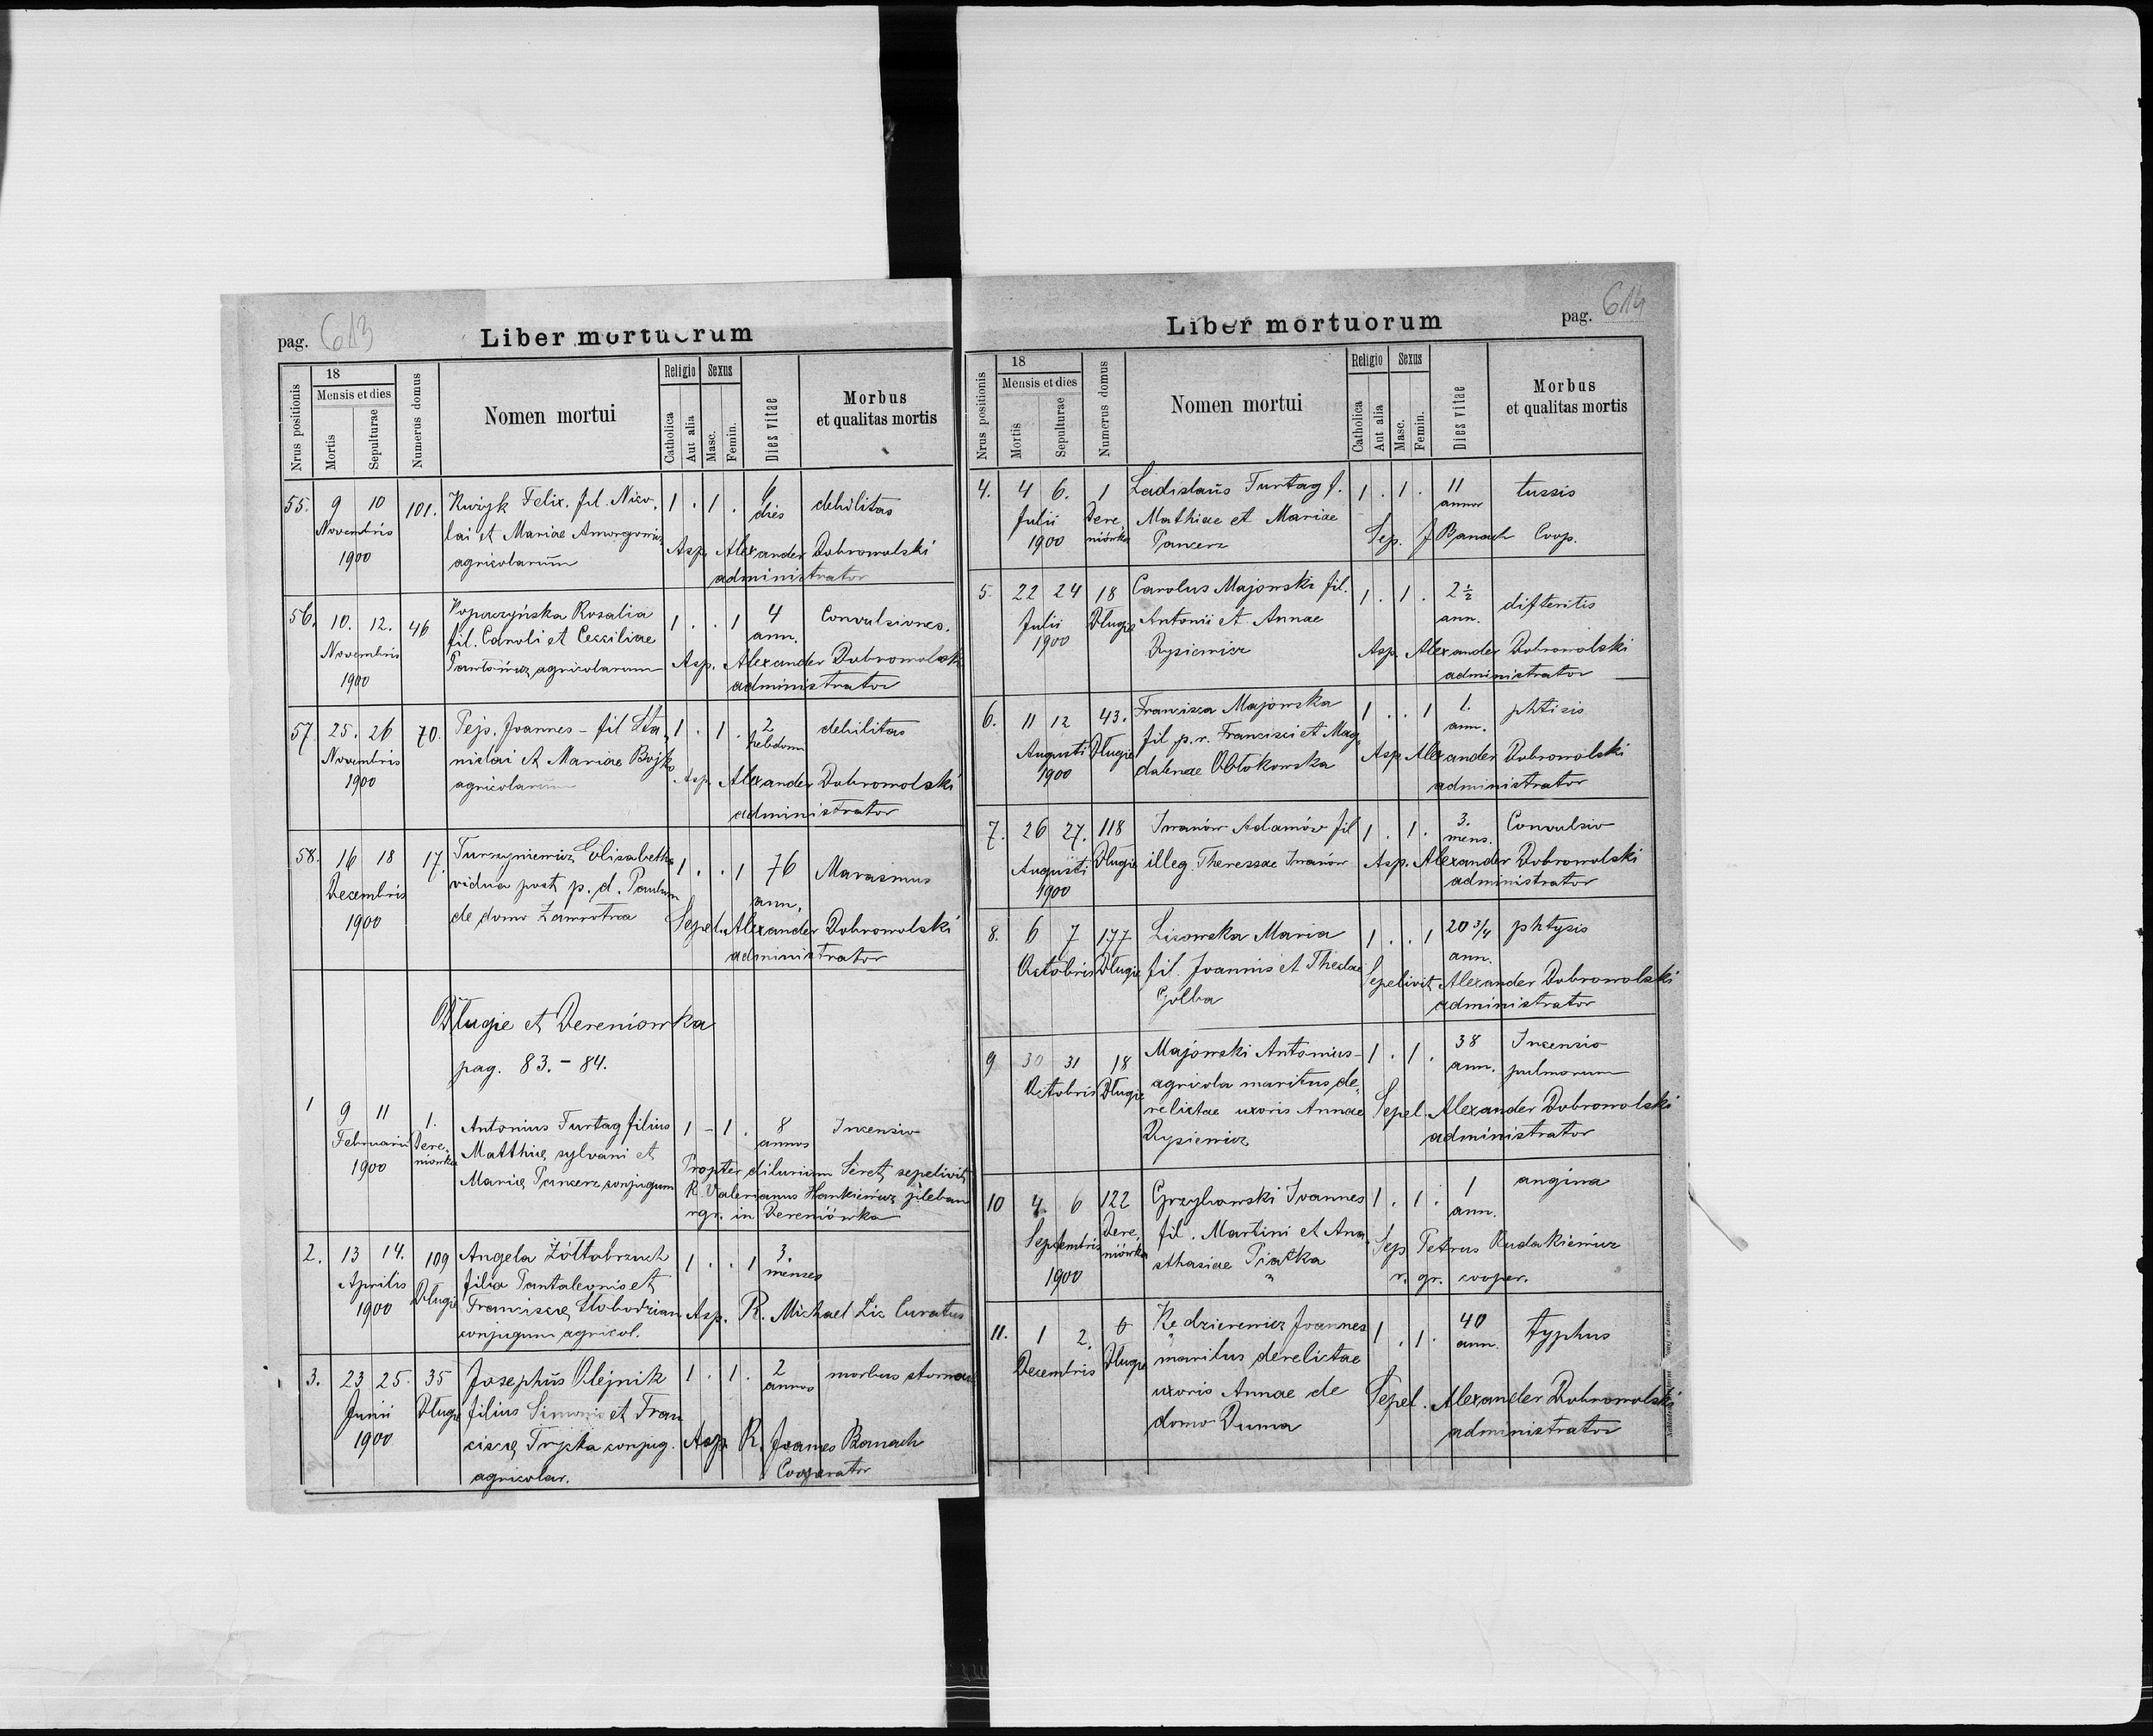 pag. 613
Liber mortuorum
Nrus positionis
18
Mensis et dies
Mortis
Sepulturae
Numerus domus
Nomen mortui
Religio
Catholica
Aut alia
Sexus
Masc.
Femin.
Dies vitae
Morbus
et qualitas mortis
55. 9 10 101. Felix. fil. Nico- 1 . 1 . 6 debilitas
Novembris lai et Mariae dies
1900 agricolarum Asp. Alexander Dobrowolski
administrator
56. 10. 12. 46 Rosalia 1 . . 1 4 Convulsiones.
Novembris fil. Caroli et Ceciliae ann.
1900 agricolarum Asp. Alexander Dobrowolski
administrator
57. 25. 26 70. Pejs. Joannes - fil Sta- 1 . 1 . 2 debilitas
Novembris nislai et Mariae Bojko hebdom
1900 agricolarum Asp. Alexander Dobrowolski
administrator
58. 16 18 17. Turzyniewicz Elisabetha 1 . . 1 76 Marasmus
Decembris vidua post p. d. Paulum ann.
1900 de domo Sepel. Alexander Dobrowolski
administrator
Długie et Dereniówka
pag. 83. - 84.
1 9 11 1. Antonius Furtag filius 1 - 1 . 8 Incensio
Februarii Dere- Matthiæ sylvani et annos
1900 niówka Mariæ Pancerz conjugum
Propter diluvium Seret sepelivit
R. Valerianus Hankiewicz pleban
rgr. in Dereniówka
2. 13 14. 109 Angela Żółtobrzuch 1 . . 1 3.
Aprilis Długie filia Pantaleonis et menses
1900 Franciscæ Słobodzian Asp. R. Michael Lic Curatus
conjugum agricol.
3. 23 25. 35 Josephus Olejnik 1 . 1 . 2 morbus
Junii Długie filius Simonis et Fran annos
1900 ciscæ conjug. Asp. R. Joannes Banach
agricolar. Cooperator
Liber mortuorum
pag. 614
Nrus positionis
18
Mensis et dies
Mortis
Sepulturae
Numerus domus
Nomen mortui
Religio
Catholica
Aut alia
Sexus
Masc.
Femin.
Dies vitae
Morbus
et qualitas mortis
4. 4 6. 1 Ladislaus Furtag f. 1 . 1 . 11 tussis
Julii Dere- Mathiae et Mariae annor
1900 niówka Pancerz Sep. J Banach Coop.
5. 22 24 18 Carolus Majowski fil. 1 . 1 . 2 ½ difteritis
Julii Długie Antonii et Annae ann.
1900 Rysiewicz Asp. Alexander Dobrowolski
administrator
6. 11 12 43. Francisca Majowska 1 . . 1 1. phtisis
Augusti Długie fil p. r. Francisci et Mag- ann.
1900 dalenae Obłokowska Asp. Alexander Dobrowolski
administrator
7. 26 27. 118 Iwanów Adamów fil 1 . 1 . 3. Convulsio
Augusti Długie illeg. Theressae Iwanów mens.
1900 Asp. Alexander Dobrowolski
administrator
8. 6 7 177 Lisowska Maria 1 . . 1 20 3/4 phtysis
Octobris Długie fil. Joannis et Theclae ann.
Golba Sepelivit Alexander Dobrowolski
administrator
9 30 31 18 Majowski Antonius- 1 . 1 . 38 Incensio
Octobris Długie agricola maritus de- ann. pulmorum
relictae uxoris Annae Sepel. Alexander Dobrowolski
Rysiewicz administrator
10 4. 6 122 Grzybowski Joannes 1 . 1 . 1 angina
Septembris Dere- fil. Martini et Ana- ann.
1900 niówka sthasiae Piątka Sep. Petrus Rudakiewicz
r. gr. cooper.
11. 1 2. 6 Kędzierewicz Joannes 1 . 1 . 40 typhus
Decembris Długie maritus derelictae ann.
uxoris Annae de Sepel. Alexander Dobrowolski
domo Duma administrator